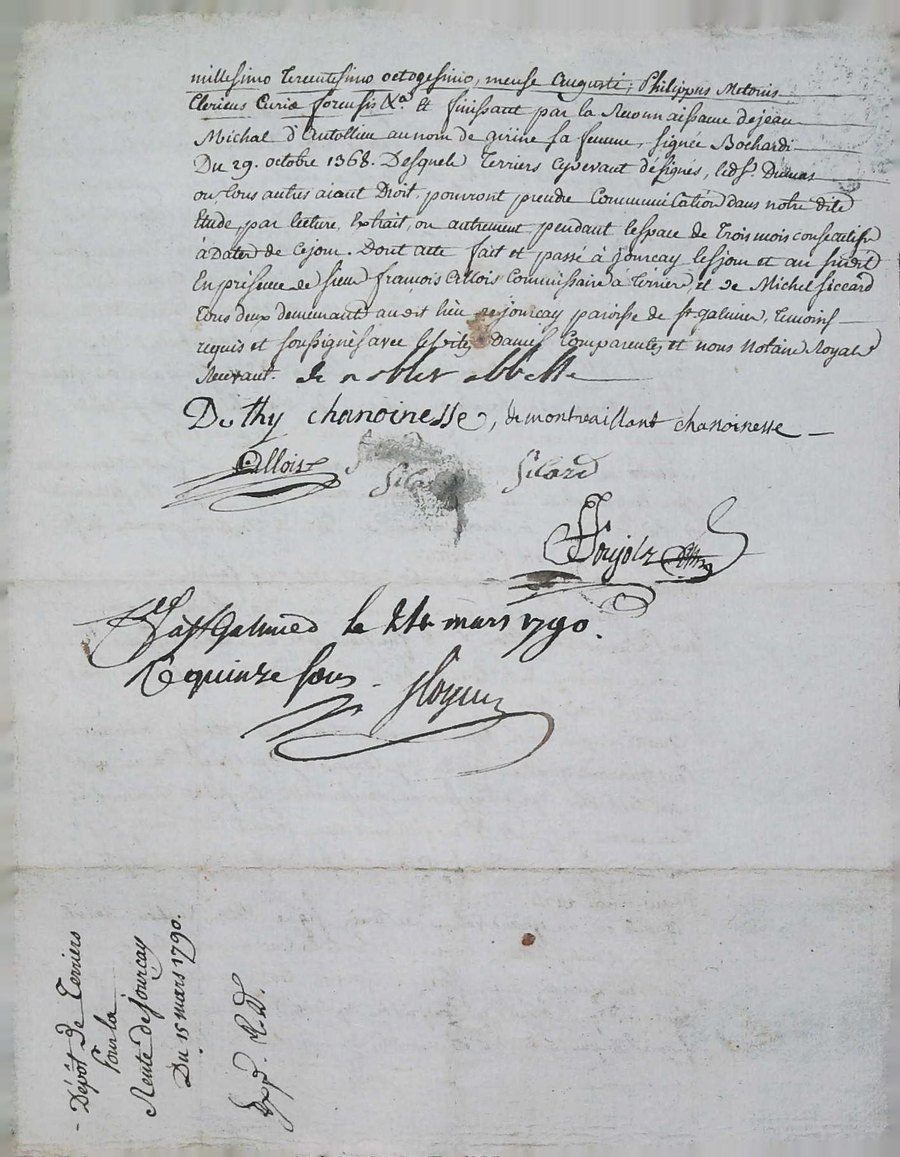 millesimo tercentesimo octogesimo, mense Augusti, Philippus Metonis
Clericus Curiæ forensis &a. Et finissant par la Reconnaissance de jean
Michal d'Autollieu au nom de girine sa femme, signée Bochardi
Du 29. octobre 1368. Desquels Terriers cydevant désignés, lesd. Dames
ou tous autres aiant Droit, pourront prendre Communication dans notre dite
Etude, par lecture, Extrait, ou autrement, pendant lespace de Trois mois consecutifs
à Dater de cejour. Dont acte fait et passé à jourcay les jour et an susdit
En présence de sieur françois Allois Commissaire à terrier et de Michel Siccard
tous deux demeurant audit lieu de jourcay paroisse de st. galmier, temoins
requis et soussignés avec lesdites Dames Comparentes et nous Notaire Royal
Recevant. de nobles abbesse
De thy chanoinesse, de montreaillant chanoinesse
Allois
Sicard
Poujols
à st Galmier le 24 mars 1790.
R quinze sous
Dépôt de Terriers
Pour la
Rente de jourcay
Du 15 mars 1790.